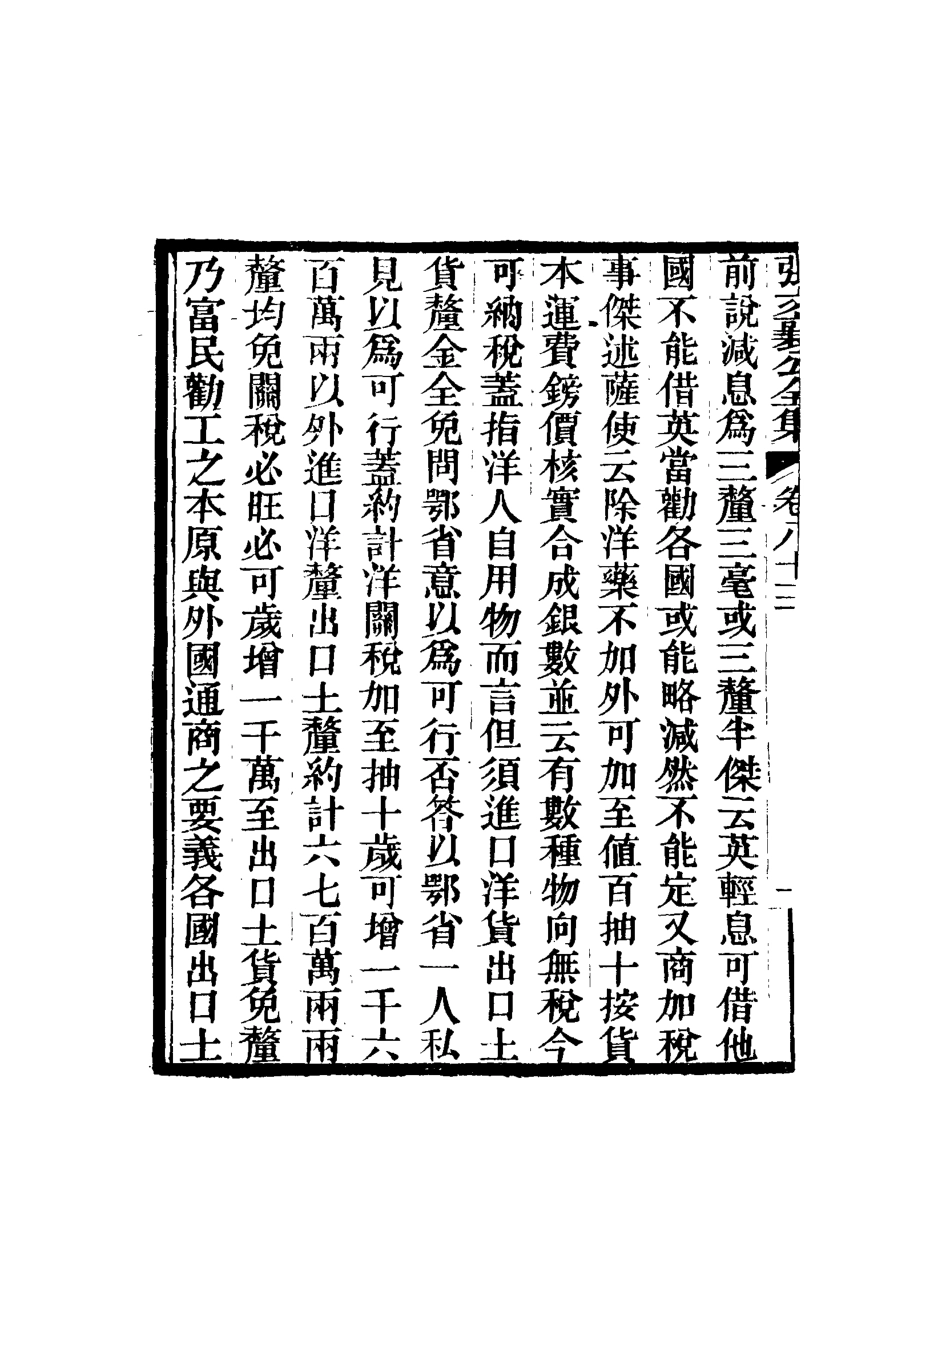 張文襄公全集 卷八十三 一
前說減息爲三釐三毫或三釐半傑云英輕息可借他
國不能借英當勸各國或能略減然不能定又商加稅
事傑述薩使云除洋藥不加外可加至值百抽十按貨
本運費鎊價核實合成銀數並云有數種物向無稅今
可納稅蓋指洋人自用物而言但須進口洋貨出口土
貨釐金全免問鄂省意以爲可行否答以鄂省一人私
見以爲可行蓋約計洋關稅加至抽十歲可增一千六
百萬兩以外進口洋釐出口土釐約計六七百萬兩兩
釐均免關稅必旺必可歲增一千萬至出口土貨免釐
乃富民勸工之本原與外國通商之要義各國出口土